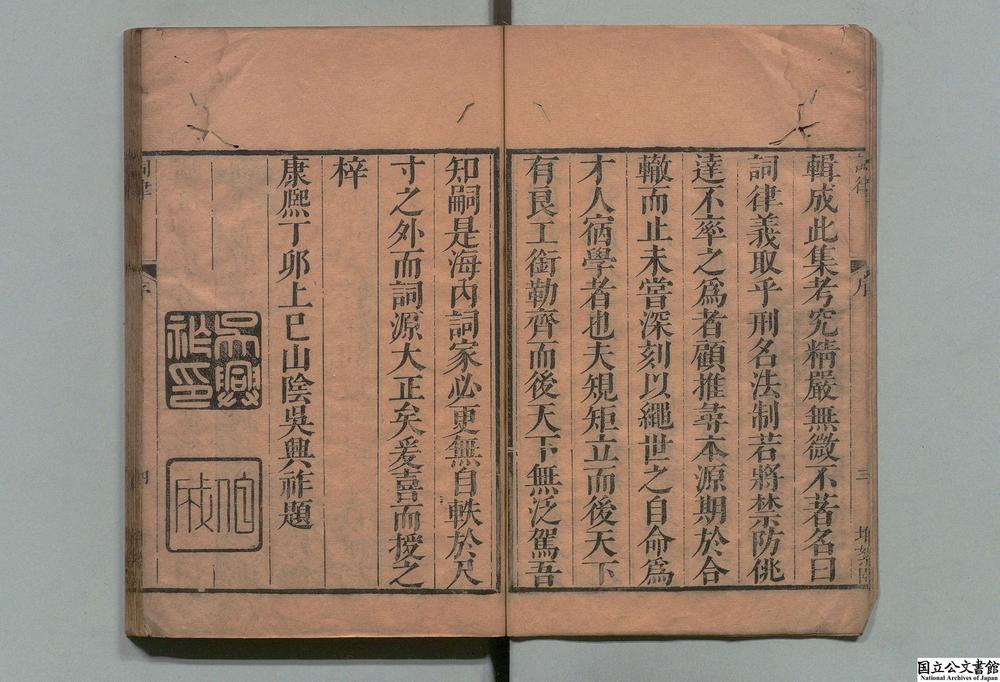 輯成此集考究精嚴無微不著名曰
詞律義取乎刑名法制若將禁防佻
達不率之爲者顧推尋本源期於合
轍而止未嘗深刻以繩世之自命爲
才人宿學者也夫規矩立而後天下
有良工銜勒齊而後天下無泛駕吾
知嗣是海內詞家必更無自軼於尺
寸之外而詞源大正矣爰喜而授之
梓
康熙丁卯上巳山陰吳興祚題
吳興祚印
伯成
詞律
序
三
堆絮園
詞律
序
四
国立公文書館
National Archives of Japan